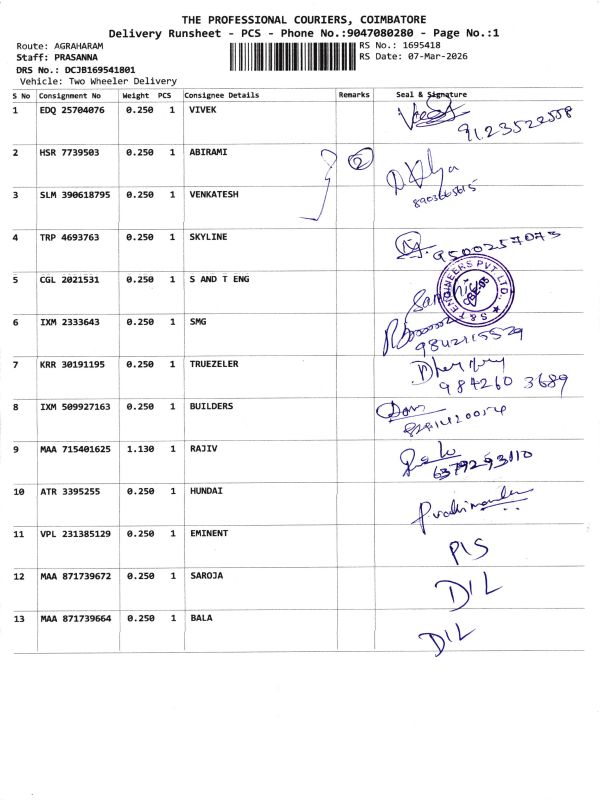 THE PROFESSIONAL COURIERS, COIMBATORE
Delivery Runsheet - PCS - Phone No.:9047080280 - Page No.:1
Route: AGRAHARAM
RS No.: 1695418
Staff: PRASANNA
RS Date: 07-Mar-2026
DRS No.: DCJB169541801
Vehicle: Two Wheeler Delivery
S No Consignment No Weight PCS Consignee Details Remarks Seal & Signature
1 EDQ 25704076 0.250 1 VIVEK
9123522558
2 HSR 7739503 0.250 1 ABIRAMI 2
8903665615
3 SLM 390618795 0.250 1 VENKATESH
4 TRP 4693763 0.250 1 SKYLINE
9500257073
5 CGL 2021531 0.250 1 S AND T ENG
S & T ENGINEERS PVT. LTD.,
6 IXM 2333643 0.250 1 SMG
9842115529
7 KRR 30191195 0.250 1 TRUEZELER
984260 3689
8 IXM 509927163 0.250 1 BUILDERS
9 MAA 715401625 1.130 1 RAJIV
6379293110
10 ATR 3395255 0.250 1 HUNDAI
11 VPL 231385129 0.250 1 EMINENT
P1S
12 MAA 871739672 0.250 1 SAROJA
D1L
13 MAA 871739664 0.250 1 BALA
D1L